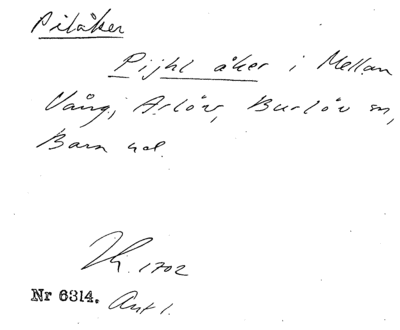 Pilåker
Pijhl åker i Mellan
Vång, Arlöv, Burlöv sn,
Bara hd.
Jb. 1702
Nr 6314. Ant 1.